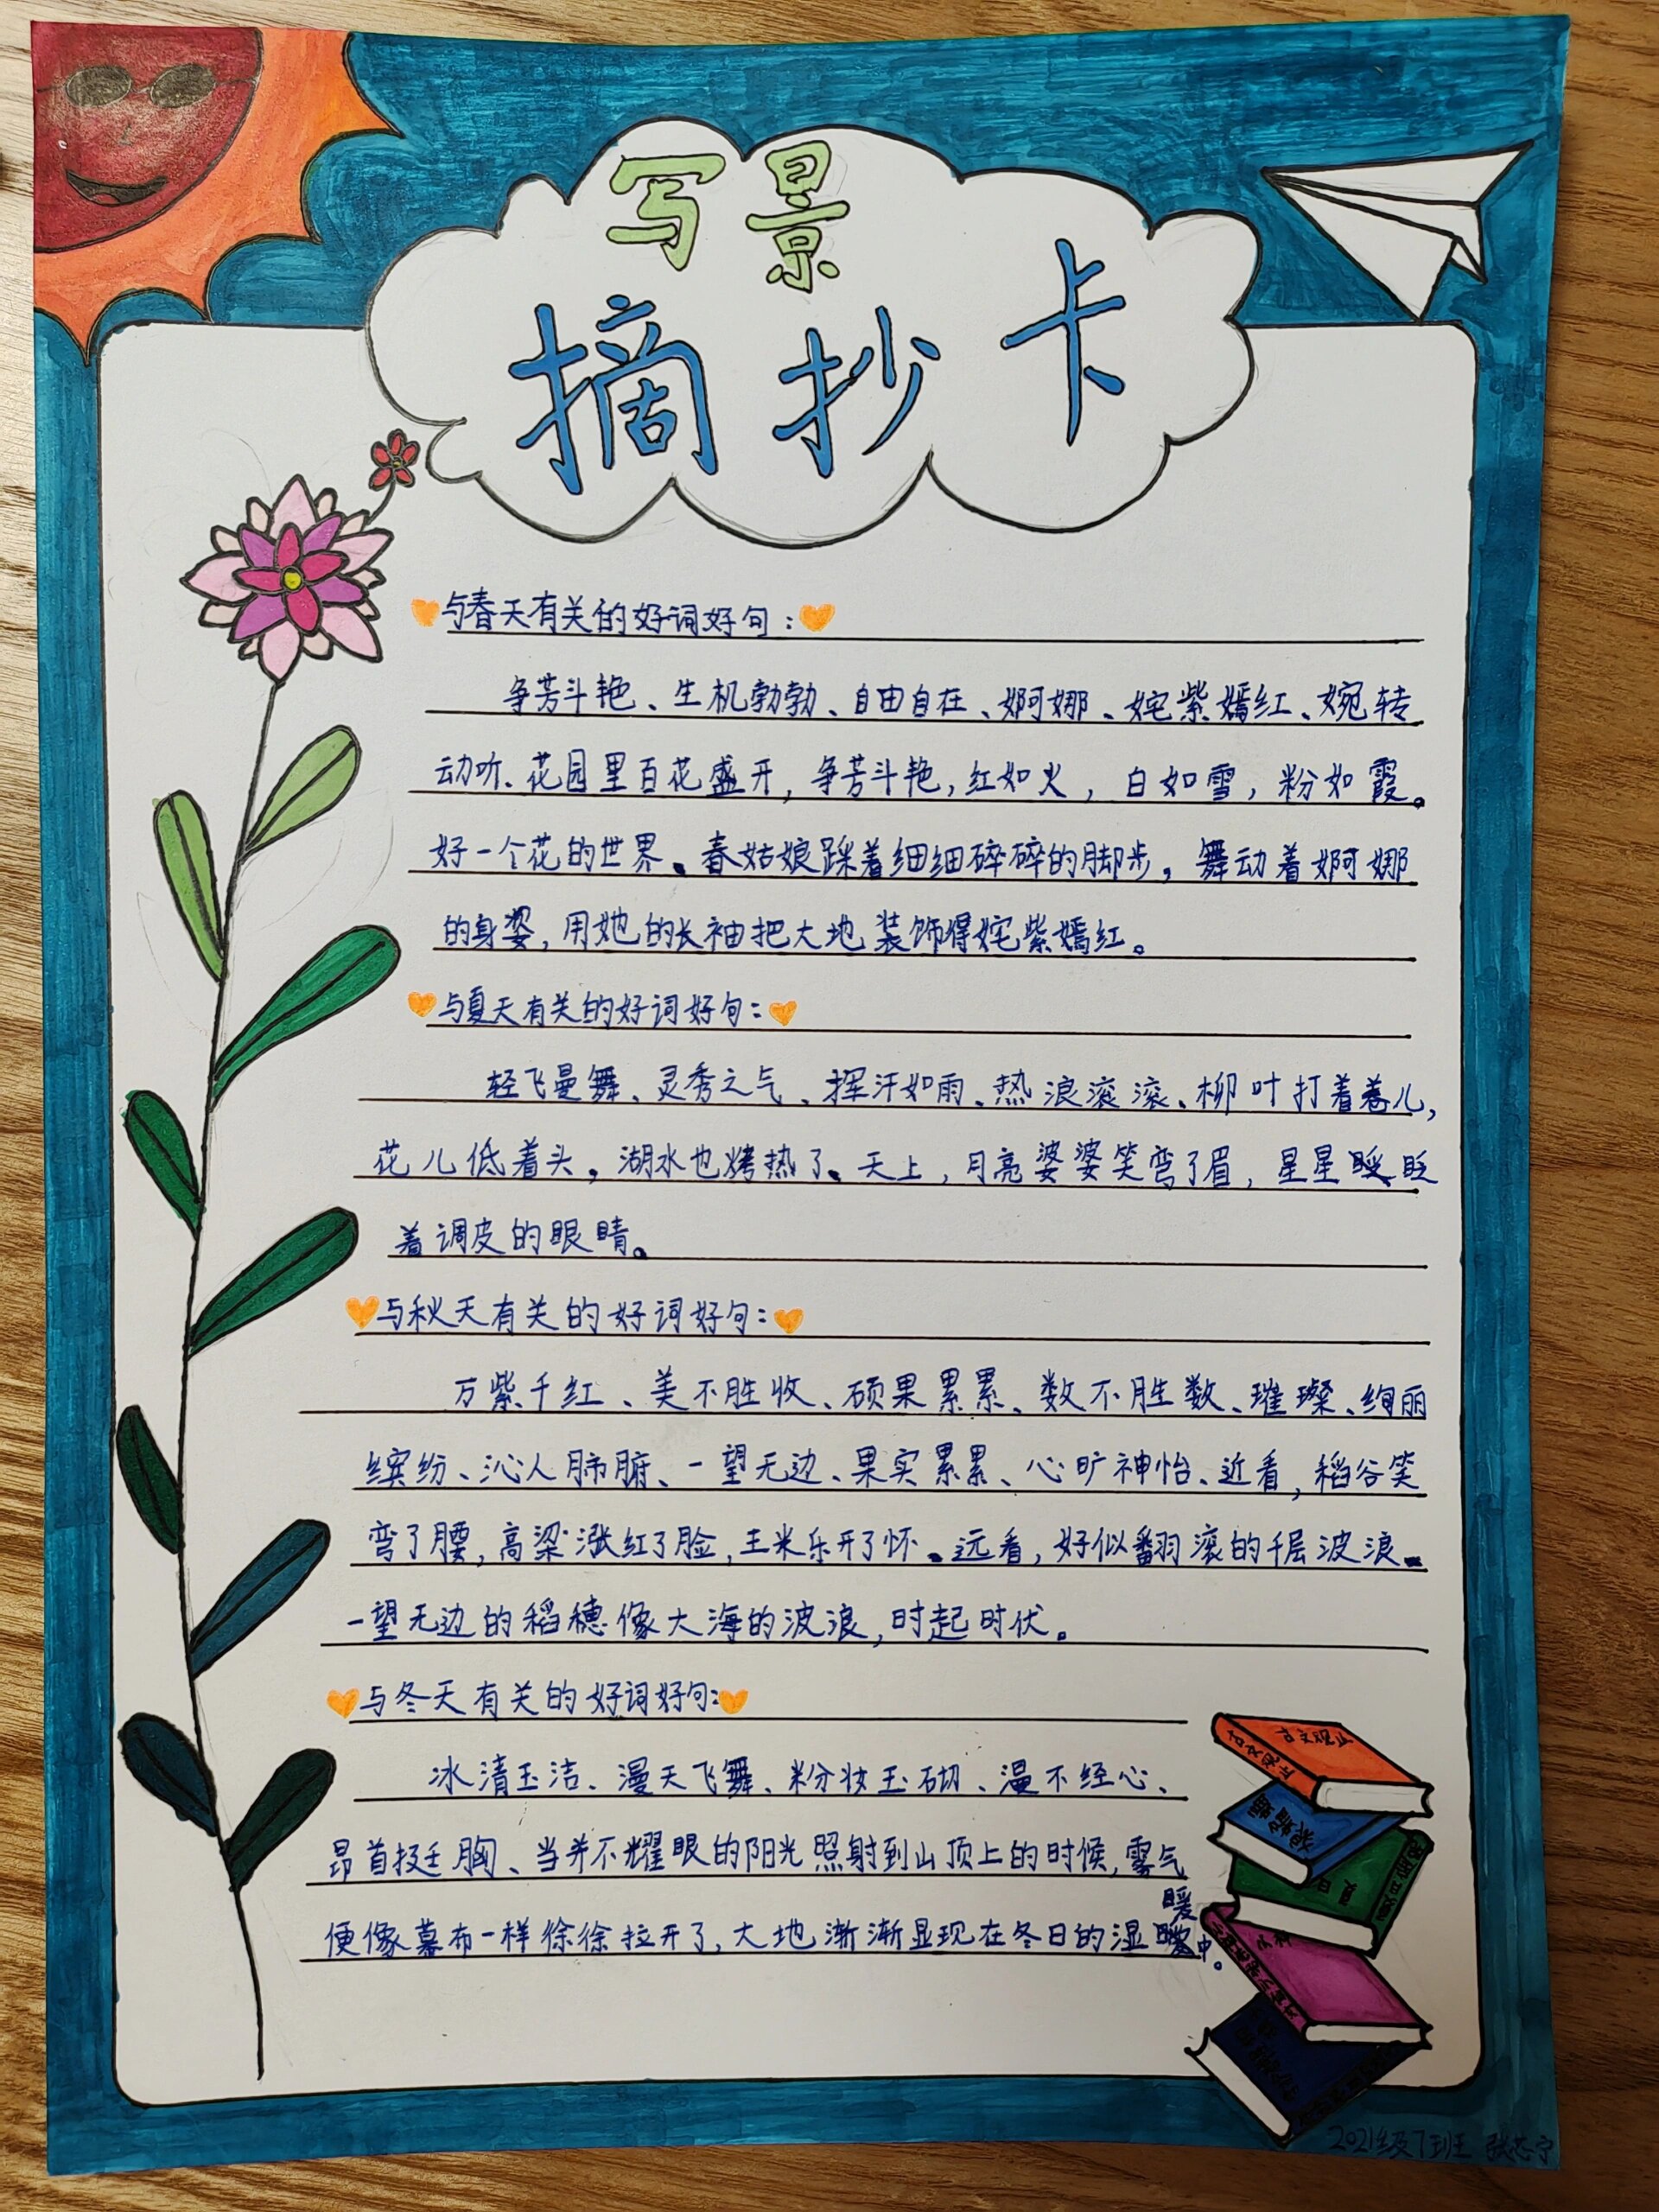 写景
摘抄卡
与春天有关的好词好句：
争芳斗艳、生机勃勃、自由自在、婀娜、姹紫嫣红、婉转
动听、花园里百花盛开，争芳斗艳，红如火，白如雪，粉如霞。
好一个花的世界。春姑娘踩着细细碎碎的脚步，舞动着婀娜
的身姿，用她的长袖把大地装饰得姹紫嫣红。
与夏天有关的好词好句：
轻飞曼舞、灵秀之气、挥汗如雨、热浪滚滚、柳叶打着卷儿，
花儿低着头，湖水也烤热了。天上，月亮婆婆笑弯了眉，星星眨
着调皮的眼睛。
与秋天有关的好词好句：
万紫千红、美不胜收、硕果累累、数不胜数、璀璨、绚丽
缤纷、沁人肺腑、一望无边、果实累累、心旷神怡、近看，稻谷笑
弯了腰，高粱涨红了脸，玉米乐开了怀。远看，好似翻滚的千层波浪。
一望无边的稻穗像大海的波浪，时起时伏。
与冬天有关的好词好句：
冰清玉洁、漫天飞舞、粉妆玉砌、漫不经心、
昂首挺胸、当并不耀眼的阳光照射到山顶上的时候，雾气
便像幕布一样徐徐拉开了，大地渐渐显现在冬日的湿暖中。
古文观止
2021级7班